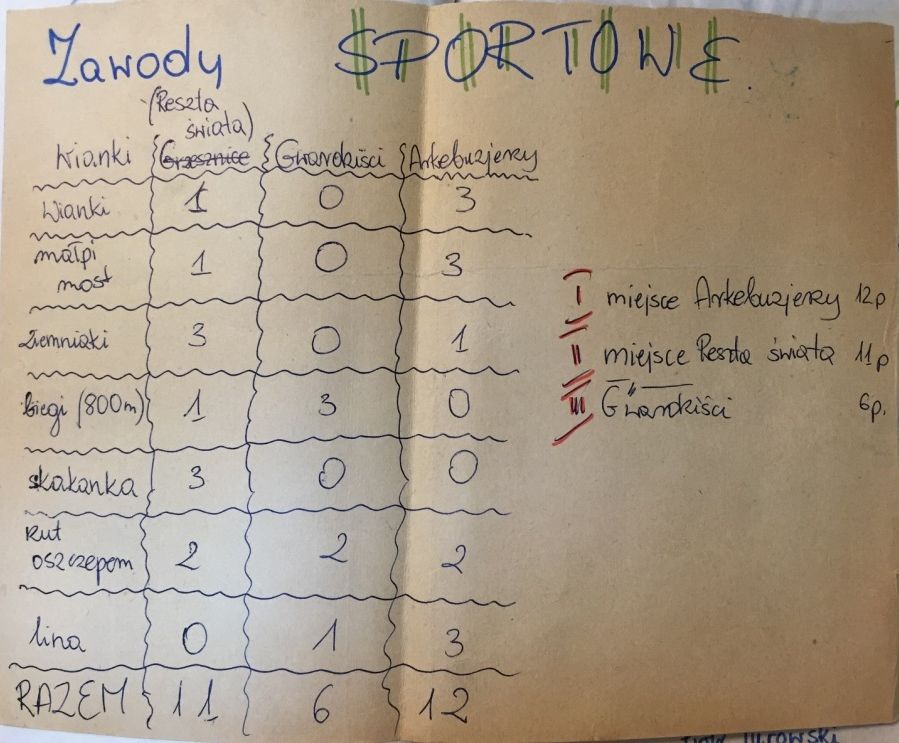 Zawody SPORTOWE.
(Reszta
świata)
Wianki Grzesznice Gwardkiści Arkebuzjerzy
Wianki 1 0 3
małpi
most 1 0 3
ziemniaki 3 0 1
biegi (800m) 1 3 0
skakanka 3 0 0
Rut
oszczepem 2 2 2
lina 0 1 3
RAZEM 11 6 12
I miejsce Arkebuzjerzy 12p
II miejsce Reszta świata 11p
III –"– Gwardkiści 6p.